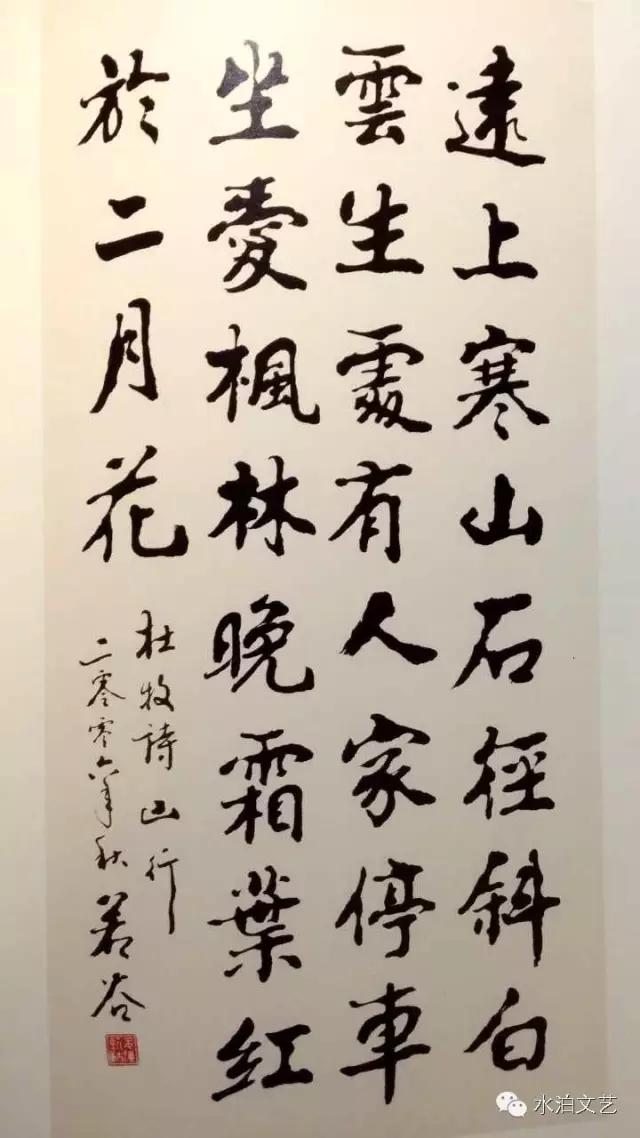 遠上寒山石徑斜白
雲生處有人家停車
坐愛楓林晚霜葉紅
於二月花
杜牧詩山行
二零零六年秋若谷
水泊文艺